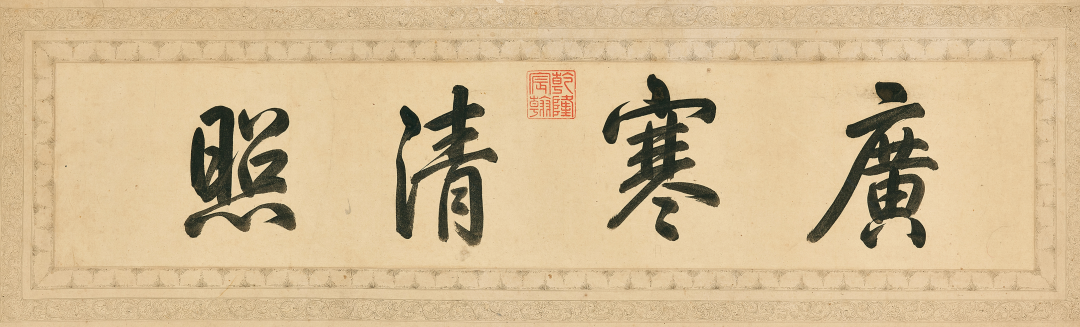 廣寒清照
乾隆
宸翰